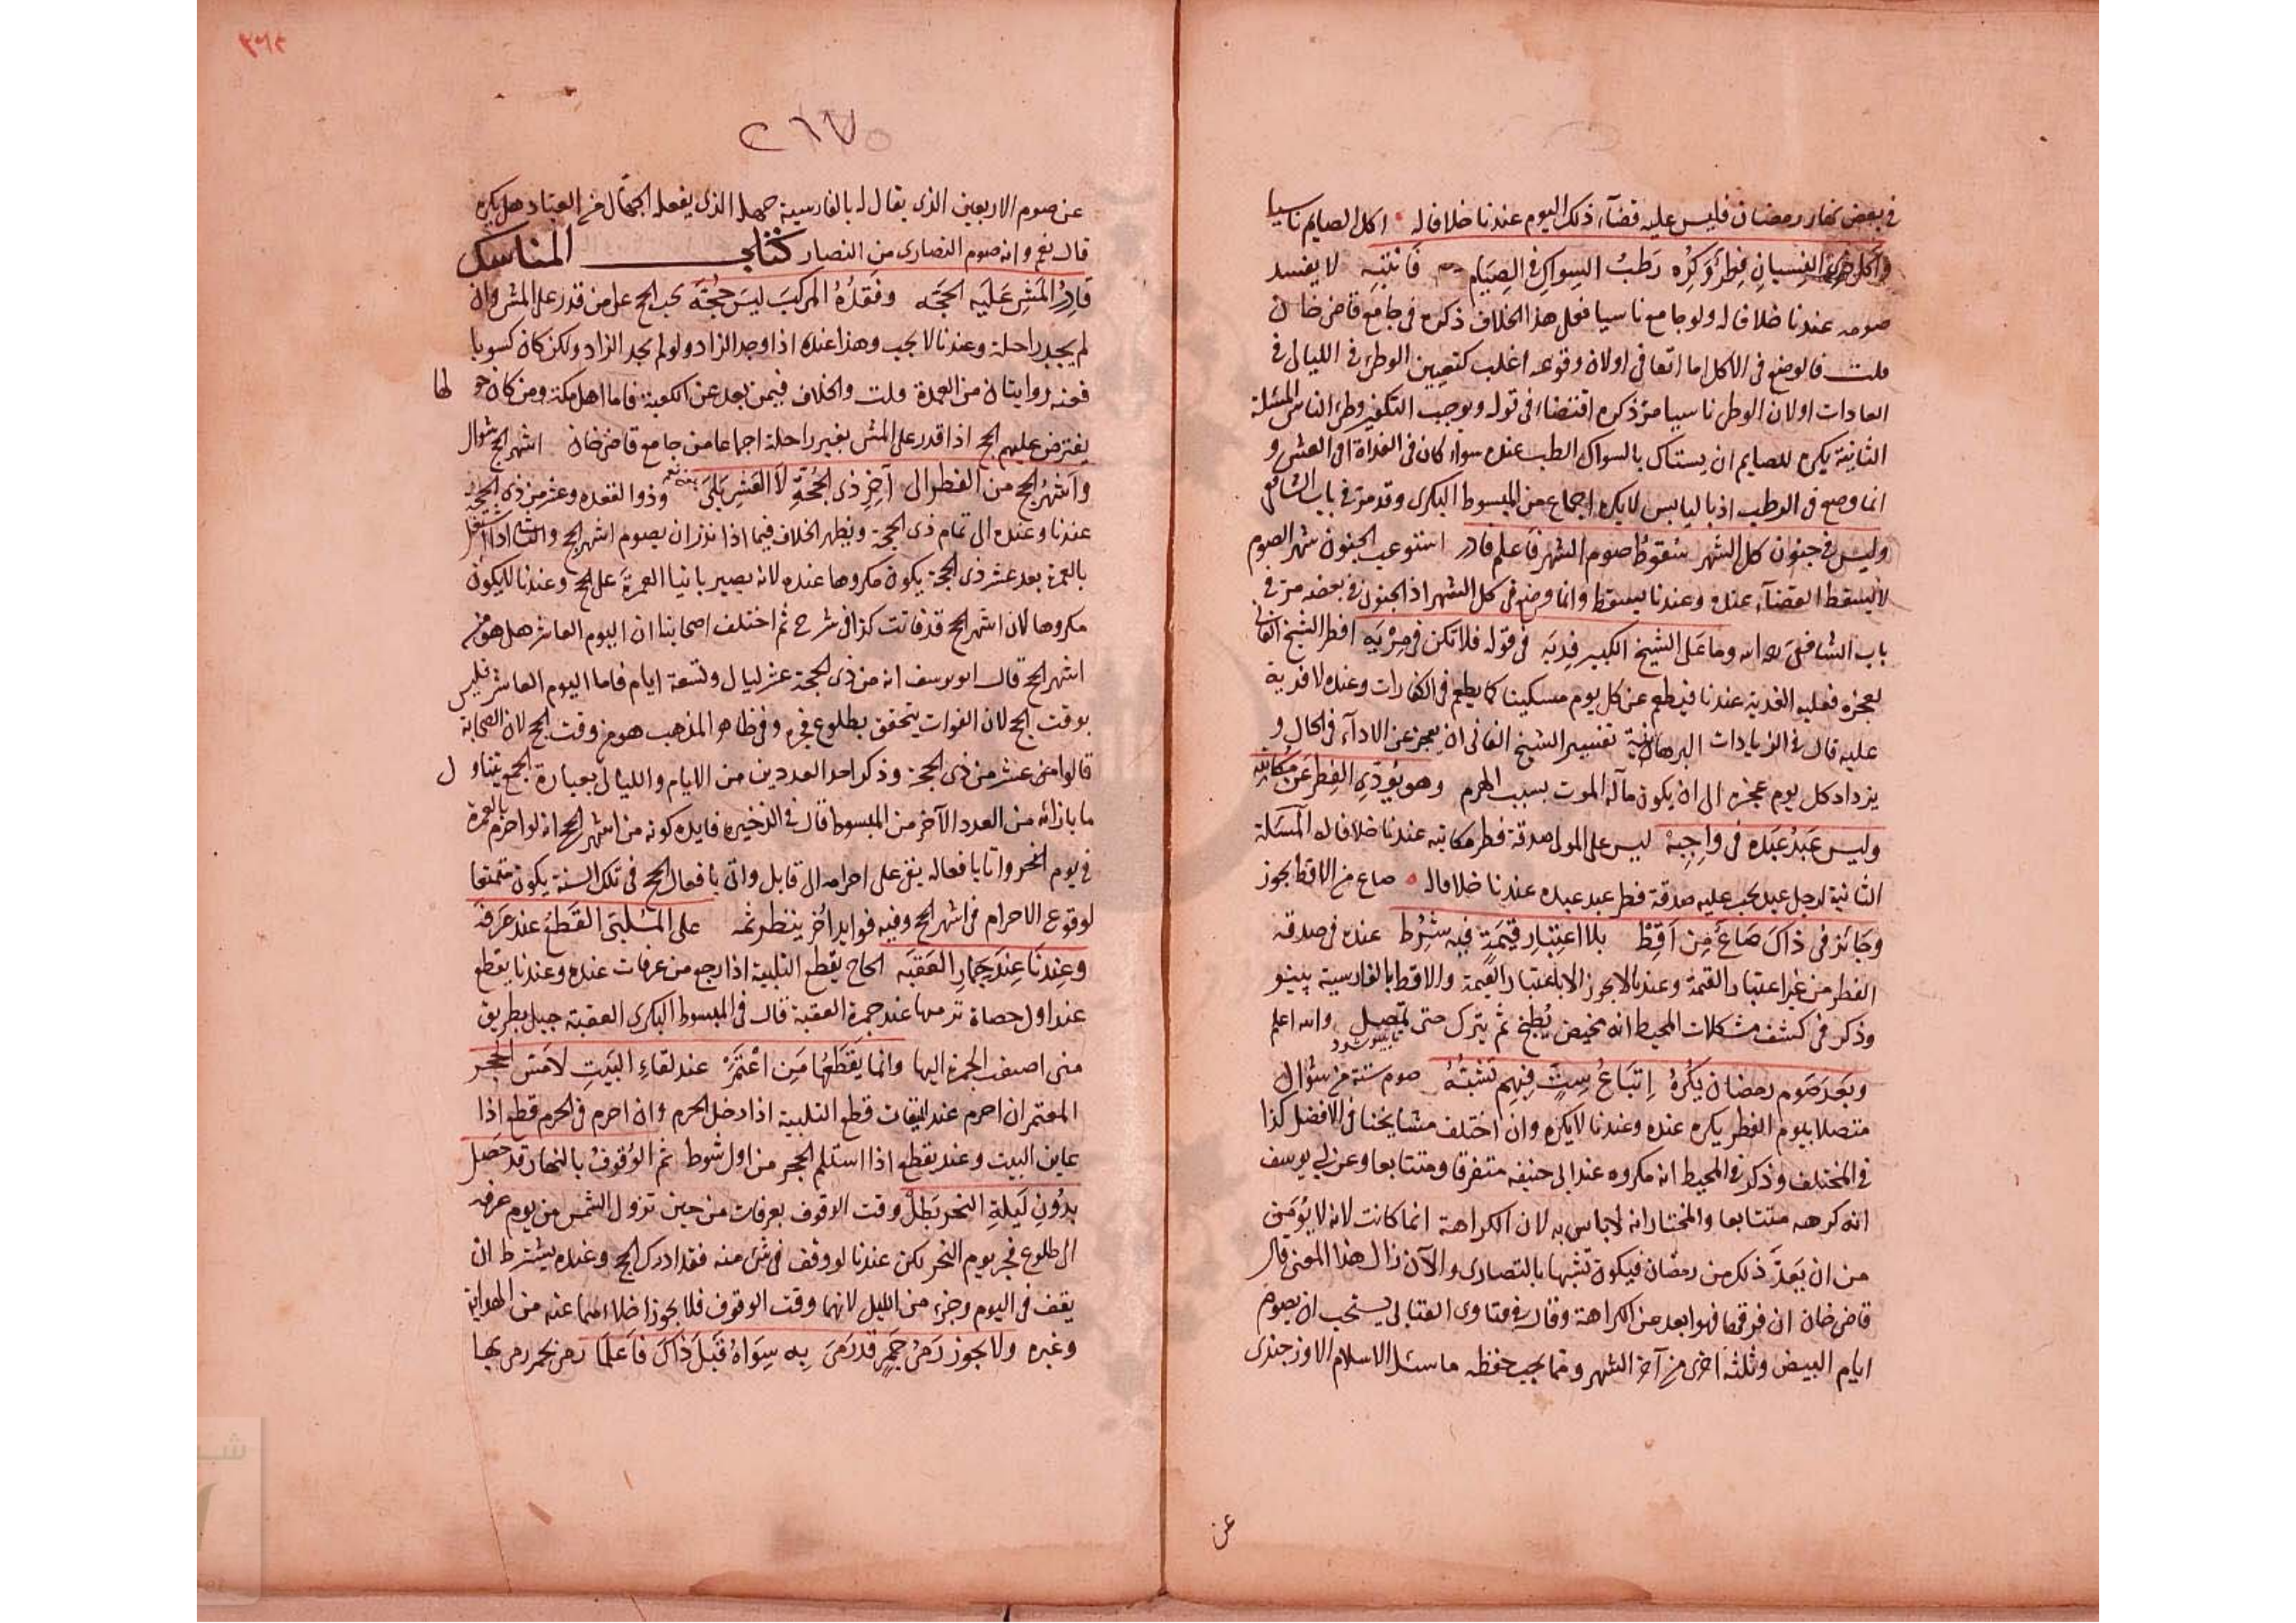 في بعض نهار رمضان فليس عليه قضآء ذلك اليوم عندنا خلافا له اكل الصايم ناسيا
واكل ذي النسيان فطر وكره رطب السواك في الصيام فانتبه لا يفسد
صومه عندنا خلافا له ولو جامع ناسيا فعلى هذا الخلاف ذكره في جامع قاضي خان
قلت فالوضع في الاكل اما اتفاقي او لان وقوعه اغلب كتعيين الوطئ في الليالي في
العادات او لان الوطئ ناسيا مر ذكره اقتضاء في قوله ويوجب التكفير وطئ الناس المسئلة
الثانية يكره للصايم ان يستاك بالسواك الرطب عنده سواء كان في الغداة او في العشي و
انما وضع في الرطب اذ باليابس لا يكره اجماع من المبسوط البكري وقد مر في باب الشافعي
وليس في جنون كل الشهر سقوط صوم الشهر فاعلم فادر استوعب الجنون شهر الصوم
لا يسقط القضآء عنده وعندنا يسقط وانما وضع في كل الشهر اذ الجنون في بعضه مر في
باب الشافعي رحمه الله وما على الشيخ الكبير فدية في قوله فلا تكن في مرية افطر الشيخ الفاني
لعجزه فعليه الفدية عندنا فيطعم عن كل يوم مسكينا كما يطعم في الكفارات وعنده لا فدية
عليه قال في الزيادات البرهانية تفسير الشيخ الفاني ان يعجز عن الادآء في الحال و
يزداد كل يوم عجزه الى ان يكون مآله الموت بسبب الهرم وهو يؤدي الفطر عن مكاتبه
وليس عبد عبده في واجبه ليس على المولى صدقة فطر مكاتبه عندنا خلافا له المسئلة
الثانية لرجل عبد يجب عليه صدقة فطر عبد عبده عندنا خلافا له صاع من الاقط يجوز
وجائز في ذاك صاع من اقط بلا اعتبار قيمة فيه شرط عنده في صدقة
الفطر من غير اعتبار القيمة وعندنا لا يجوز الا باعتبار القيمة والاقط بالفارسية پينو
وذكر في كشف مشكلات المحيط انه مخيض يطبخ ثم يترك حتى يمصل والله اعلم
وبعد صوم رمضان يكره اتباع ست فيهم تشبه صوم ستة من شوال
متصلا بيوم الفطر يكره عنده وعندنا لا يكره وان اختلف مشايخنا في الافضل كذا
في المختلف وذكر في المحيط انه مكروه عند ابي حنيفه متفرقا ومتتابعا وعن ابي يوسف
انه كرهه متتابعا والمختار انه لا باس به لان الكراهة انما كانت لانه لا يؤمن
من ان يعد ذلك من رمضان فيكون تشبها بالنصارى والآن زال هذا المعنى قال
قاضي خان ان فرقها فهو ابعد من الكراهة وقال في فتاوى العتابي يستحب ان يصوم
ايام البيض وثلثة اخرى من آخر الشهر ومما يجب حفظه ما سئل الاسلام الاوزجندي
عن
٢١٧٥
عن صوم الاربعين الذي يقال له بالفارسية چهله الذي يفعله الجهال من العباد هل يكره
قال نعم وانه صوم النصارى من النصار كتاب المناسك
قادر المشي عليه الحجه وفقده المركب ليس حجة يجب الحج على من قدر على المشي وان
لم يجد راحلة وعندنا لا يجب وهذا عنده اذا وجد الزاد ولو لم يجد الزاد ولكن كان كسوبا
فعنه روايتان من العمدة قلت والخلاف فيمن بعد عن الكعبة فاما اهل مكة ومن كان حولها
يفترض عليهم الحج اذا قدر على المشي بغير راحلة اجماعا من جامع قاضي خان اشهر الحج شوال
واشهر الحج من الفطر الى آخر ذي الحجة لا العشر بلى وذو القعده وعشر من ذي الحجة
عندنا وعنده الى تمام ذي الحجة ويظهر الخلاف فيما اذا نذر ان يصوم اشهر الحج
بالعمرة بعد عشر ذي الحجة يكون مكروها عنده لانه يصير بانيا العمرة على الحج وعندنا لا يكون
مكروها لان اشهر الحج قد فاتت كذا في شرح ثم اختلف اصحابنا ان اليوم العاشر هل هو من
اشهر الحج قال ابو يوسف انه من ذي الحجة عشر ليال وتسعة ايام فاما اليوم العاشر فليس
بوقت الحج لان الفوات يتحقق بطلوع فجره وفي ظاهر المذهب هو من وقت الحج لان الصحابة
قالوا عشر من ذي الحجة وذكر احد العددين من الايام والليالي بعبارة الجمع يتناول
ما بازائه من العدد الآخر من المبسوط قال في الذخيرة فايدة كونه من اشهر الحج انه لو احرم بالعمرة
في يوم النحر واتا بافعاله يبقى على احرامه الى قابل واتى بافعال الحج في تلك السنة يكون متمتعا
لوقوع الاحرام في اشهر الحج وفيه فوايد اخر ينظر ثمه على الملبي القطع عند عرفة
وعندنا عند جمار العقبه الحاج يقطع التلبية اذا رجع من عرفات عنده وعندنا يقطع
عند اول حصاة ترميها عند جمرة العقبة قال في المبسوط البكري العقبة جبل بطريق
منى اضيف الجمرة اليها وانما يقطعها من اعتمر عند لقاء البيت لا مس الحجر
المعتمر ان احرم عند الميقات قطع التلبية اذا دخل الحرم وان احرم في الحرم قطع اذا
عاين البيت وعندنا يقطع اذا استلم الحجر من اول شوط ثم الوقوف بالنهار قد حصل
بدون ليلة النحر بطل وقت الوقوف بعرفات من حين تزول الشمس من يوم عرفه
الى طلوع فجر يوم النحر لكن عندنا لو وقف في شئ منه فقد ادرك الحج وعنده يشترط ان
يقف في اليوم وجزء من الليل لانهما وقت الوقوف فلا يجوز اخلاء منهما عنه من الهداية
وغيره ولا يجوز رمي جمر قد رمى به سواه قبل ذاك فاعلما رمى بحجر رمى بها